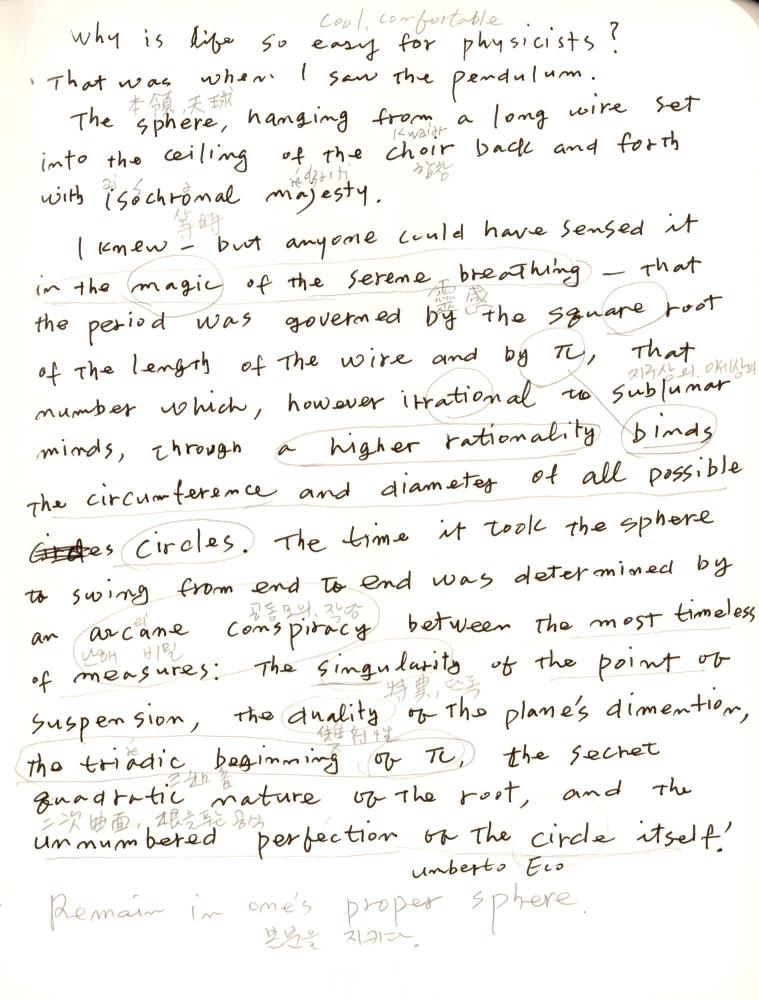 cool, comfortable
Why is life so easy for physicists?
That was when I saw the pendulum.
本領, 天球
The sphere, hanging from a long wire set
kwaiər
into the ceiling of the choir back and forth
합창
with isochronal majesty.
等時
I knew – but anyone could have sensed it
in the magic of the serene breathing – that
靈感
the period was governed by the square root
of the length of the wire and by π, that
지구상의, 이세상의
number which, however irrational to sublunar
minds, through a higher rationality binds
the circumference and diameter of all possible
circles. The time it took the sphere
to swing from end to end was determined by
공동모의, 작당
an arcane conspiracy between the most timeless
난해 비밀
of measures: The singularity of the point of
特異, 단독
suspension, the duality of the plane's dimention,
雙對性
the triadic beginning of π, the secret
三和音
quadratic nature of the root, and the
二次曲面, 根을 푸는 공식
unnumbered perfection of the circle itself!
umberto Eco
Remain in one's proper sphere.
본분을 지키다.